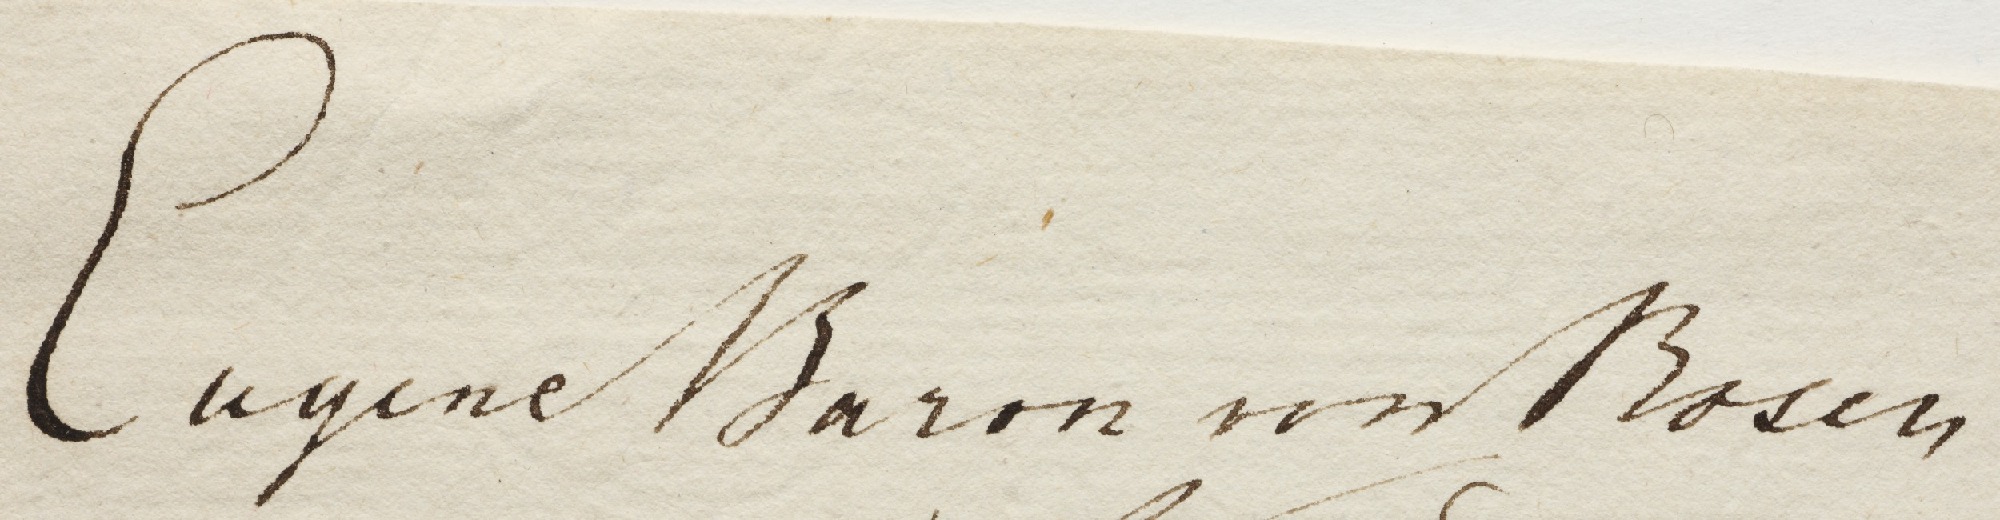 Eugene Baron von Rosen